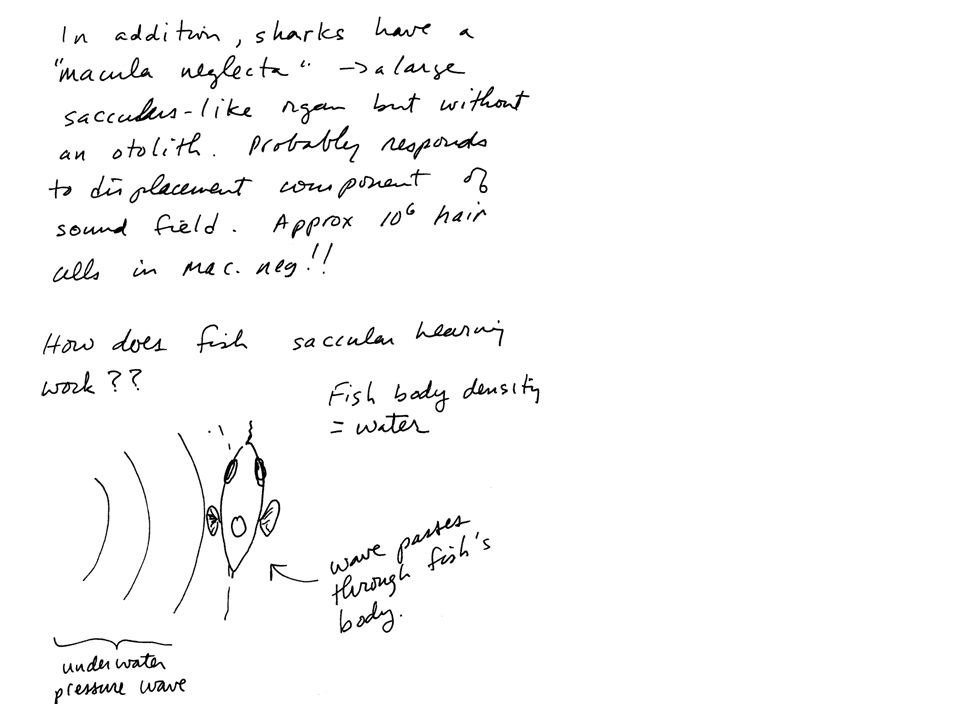 In addition, sharks have a
"macula neglecta" → a large
sacculus-like organ but without
an otolith. Probably responds
to displacement component of
sound field. Approx 10⁶ hair
cells in mac. neg!!
How does fish saccular hearing
work??
Fish body density
= water
wave passes
through fish's
body.
underwater
pressure wave